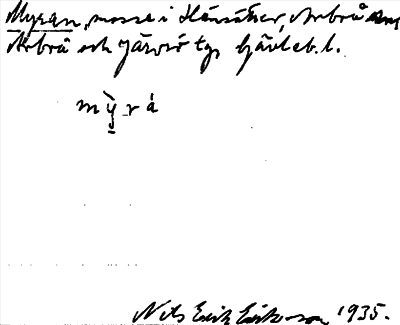 Myran, mosse i Hänsåker, Arbrå sn,
Arbrå och Järvsö tg, Gävleb. l.
m ỳ r á
Nils Erik Eriksson 1935.